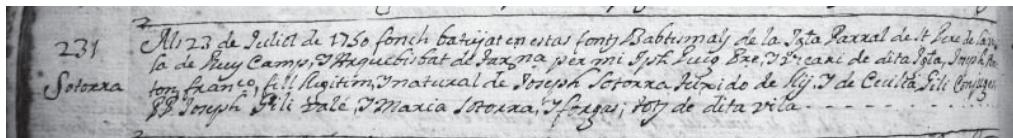 231
Sotorra
Als 23 de Juliol de 1750 fonch batejat en estas fonts Babtismals de la Igta Parral de St Pere de la vi
la de Reus Camp, y Arquebisbat de Tarna per mi Jph Puig Pre, y Vicari de dita Igta, Joseph An
ton, franco, fill llegitim, y natural de Joseph Sotorra de Reus. Y de Cecilia, y Gili Conjuges
PP. Joseph Gili y Maria Sotorra, tots de dita vila